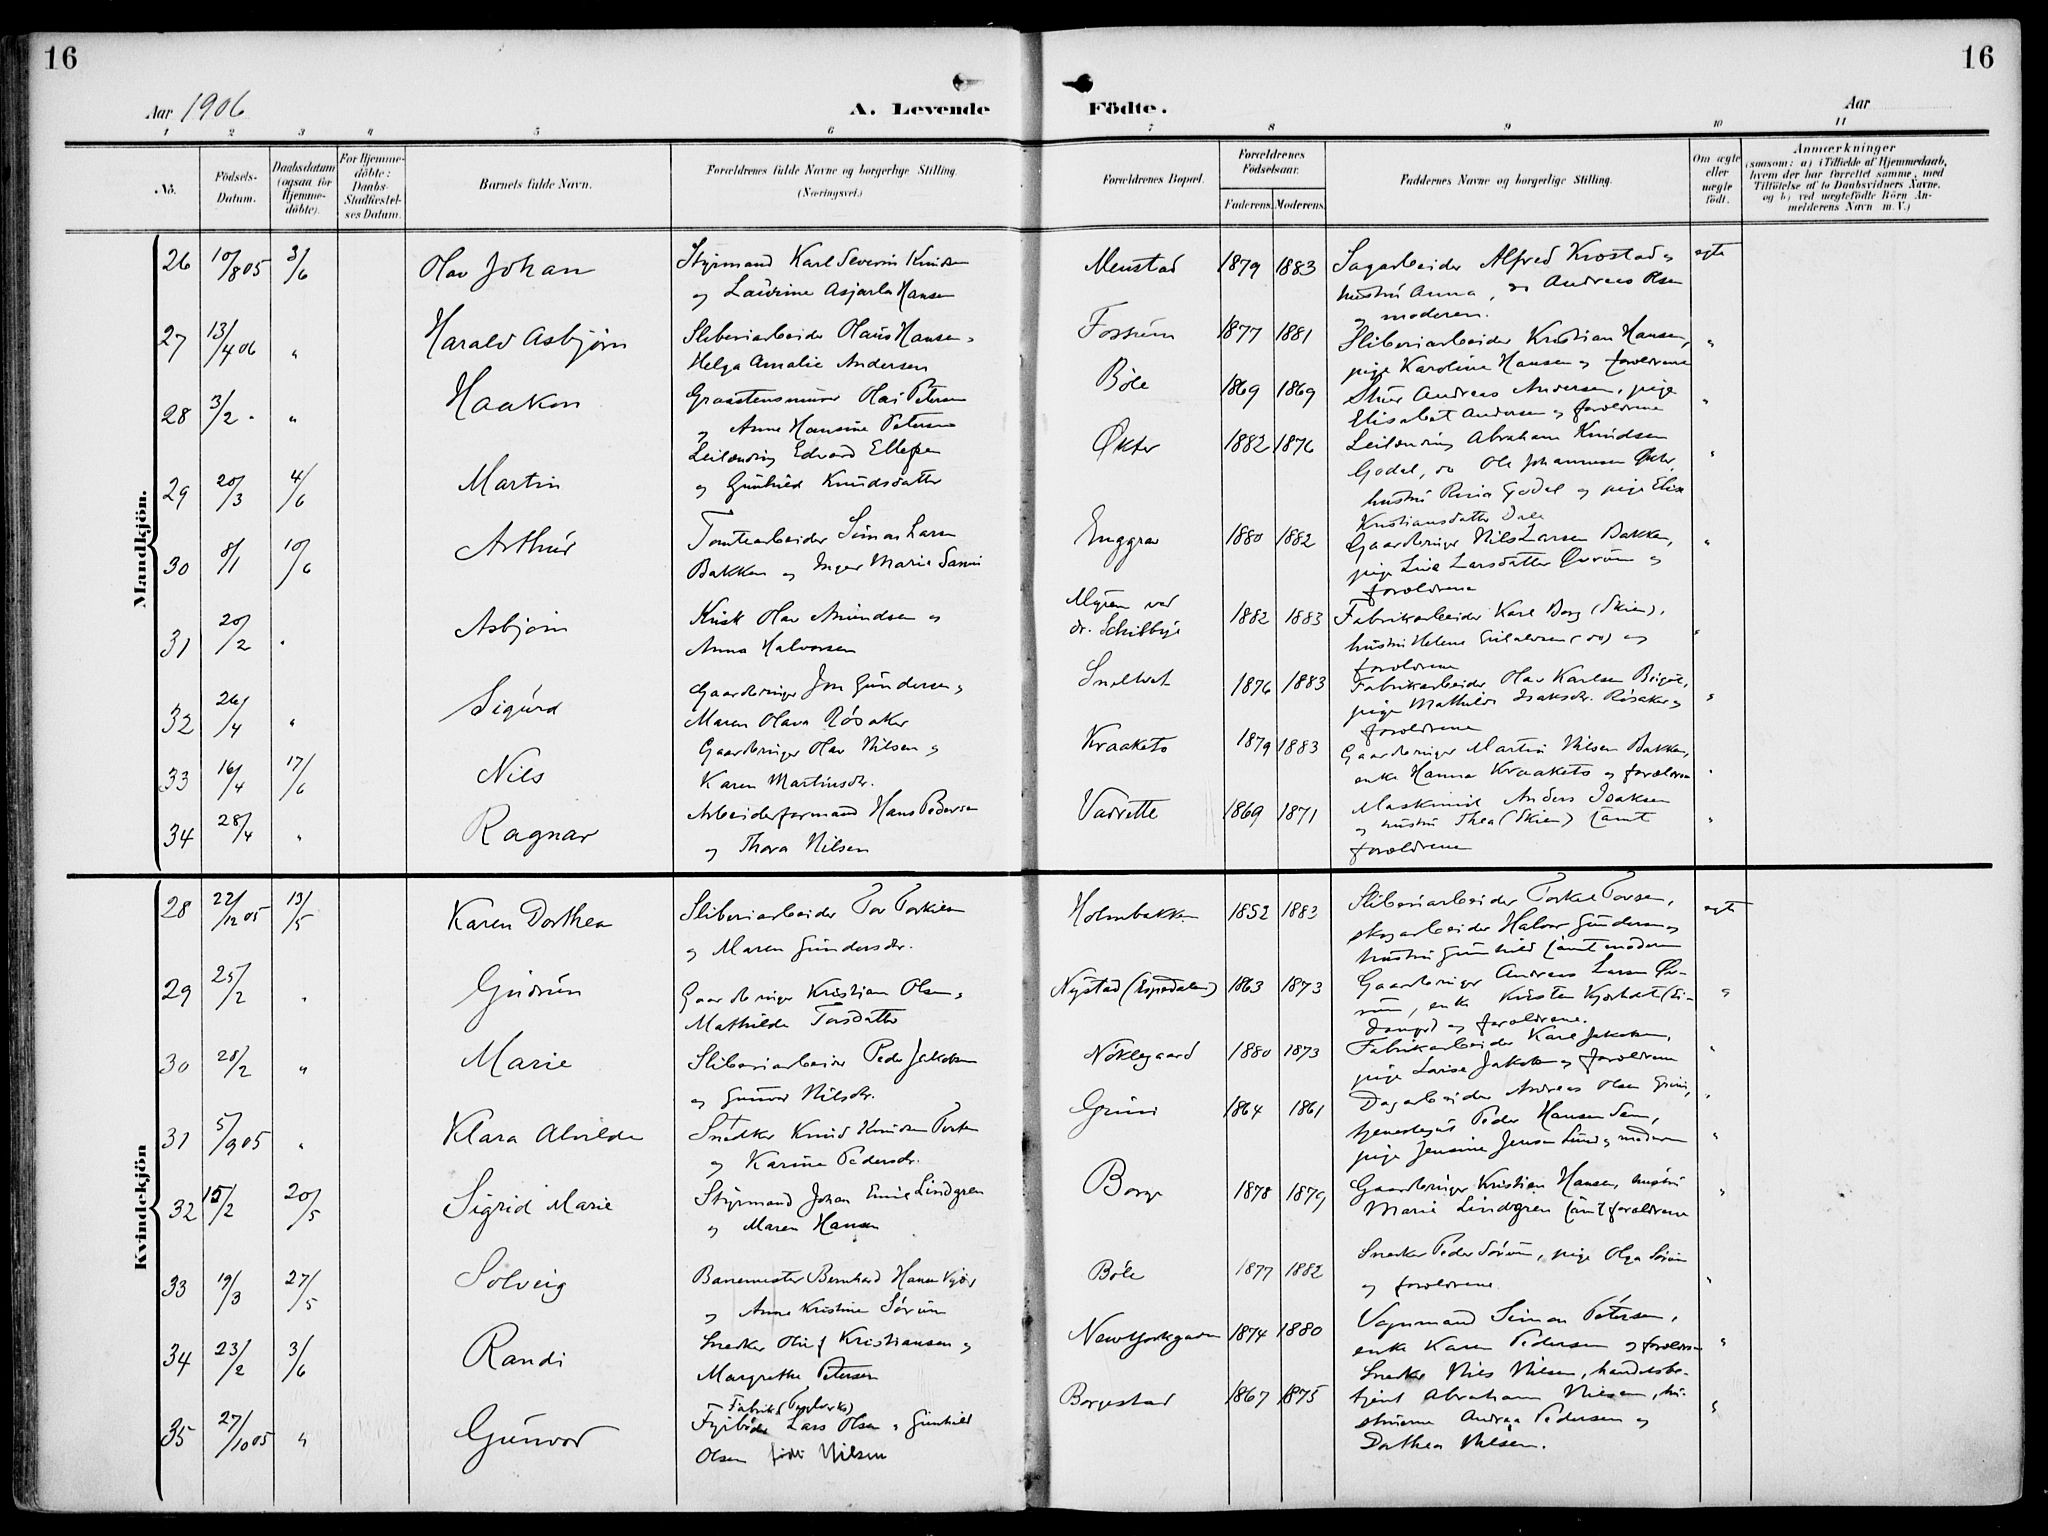 16
16
Aar 1906
A. Levende
Födte.
Aar
1 2 3 4 5 6 7 8 9 10 11
No.
Födsels-Datum.
Daabsdatum (ogsaa for Hjemme-döbte).
For Hjemme-döbte: Daabs-Stadfæstel-ses Datum.
Barnets fulde Navn.
Forældrenes fulde Navne og borgerlige Stilling. (Næringsvei.)
Forældrenes Bopæl.
Forældrenes Födselsaar.
Faderens. Moderens.
Faddernes Navne og borgerlige Stilling.
Om ægte eller uægte födt.
Anmærkninger
(saasom: a) i Tilfælde af Hjemmedaab,
hvem der har forrettet samme, med
Tilföielse af to Daabsvidners Navne.
og b) ved uægtefödte Börn An-
melderens Navn m. V.)
Mandkjön.
26 10/8 05 3/6 Olav Johan Styrmand Karl Severin Knudsen
og Laurine Asjarla Hansen
Menstad 1879 1883 Sagarbeider Alfred Krostad og
hustru Anna, og Andreas Olsen
og moderen.
ægte
27 13/4 06 " Harald Asbjørn Sliberiarbeider Olaus Hansen og
Helga Amalie Andersen
Fossum 1877 1881 Sliberiarbeider Kristian Hansen,
pige Karoline Hansen og forældrene
"
28 3/2 " " Haakon Graastensmurer Olai Petersen
og Anne Hansine Petersen
Böle 1869 1869 Andreas Andersen, pige
Elisabet Andersen og forældrene
"
29 20/3 4/6 Martin Leilænding Edvard Ellefsen
og Gunhild Knudsdatter
Økter 1882 1876 Leilænding Abraham Knudsen
Godal, do Ole Johannessen Økter,
hustru Godal og pige Elise
Kristiansdatter Dale
"
30 8/1 10/6 Arthur Tomtearbeider Simon Larsen
Bakken og Inger Marie
Enggrav 1880 1882 Gaardbruger Nils Larsen Bakken,
pige Lina Larsdatter og
forældrene
"
31 20/2 " Asbjørn Kusk Olav Amundsen og
Anna Halvorsen
Myren ved
dr. Schilbye
1882 1883 Fabrikarbeider Karl Borg (Skien),
hustru Helene (do) og
forældrene
"
32 26/4 " Sigurd Gaardbruger Jon Gundersen og
Maren Olava Røsaker
1876 1883 Fabrikarbeider Olav Karlsen
pige Mathilde Isaksdr. Røsaker og
forældrene
"
33 16/4 17/6 Nils Gaardbruger Olav Nilsen og
Karen Martinsdr.
Kraaketo 1879 1883 Gaardbruger Martin Nilsen Bakken,
enke Hanna Kraaketo og forældrene
"
34 28/4 " Ragnar Arbeiderformand Hans Pedersen
og Thora Nilsen
1869 1871 Maskinist Anders Isaksen
og hustru Thea (Skien) samt
forældrene
"
Kvindekjön
28 22/12 05 13/5 Karen Dorthea Sliberiarbeider Tor Torkilsen
og Maren Gundersdr.
Holmbakken 1852 1883 Sliberiarbeider Torkel Torsen,
skogarbeider Halvor Gundersen og
hustru Gunhild samt moderen
ægte
29 25/2 " Gudrun Gaardbruger Kristian Olsen og
Mathilde Torsdatter
Nystad (Espedalen) 1863 1873 Gaardbruger Andreas Larsen
enke Kirsten
og forældrene.
"
30 28/2 " Marie Sliberiarbeider Peder Jakobsen
og Gunvor Nilsdr.
Nöklegaard 1880 1873 Fabrikarbeider Karl Jakobsen,
pige Larise Jakobsen og forældrene
"
31 5/9 05 " Klara Alvilde Snedker Knud Knudsen
og Karine Pedersdr.
Grini 1864 1861 Dagarbeider Andreas Olsen Grini,
tjenestegut Peder Hansen Sem,
pige Jensine Jensen Lund og moderen
"
32 15/2 20/5 Sigrid Marie Styrmand Johan Emil Lindgren
og Maren Hansen
Borge 1878 1879 Gaardbruger Kristian Hansen, hustru
Marie Lindgren samt forældrene
"
33 19/3 27/5 Solveig Banemester Bernhard Hansen
og Anne Kristine Sörum
Böle 1877 1882 Snedker Peder Sörum, pige Olga Sörum
og forældrene.
"
34 23/2 3/6 Randi Snedker Oluf Kristiansen og
Margrethe Petersen
Newyorkgaden 1874 1880 Vognmand Simon Petersen,
enke Karen Pedersen og forældrene
"
35 27/10 05 " Gunvor Fabrik (Teglverks)
Fyrböder Lars Olsen og Gunhild
Olsen född Nilsen
Borgestad 1867 1875 Snedker Nils Nilsen, handelsbe-
tjent Abraham Nilsen, hu-
struerne Andrea Pedersen og
Dorthea Nilsen.
"